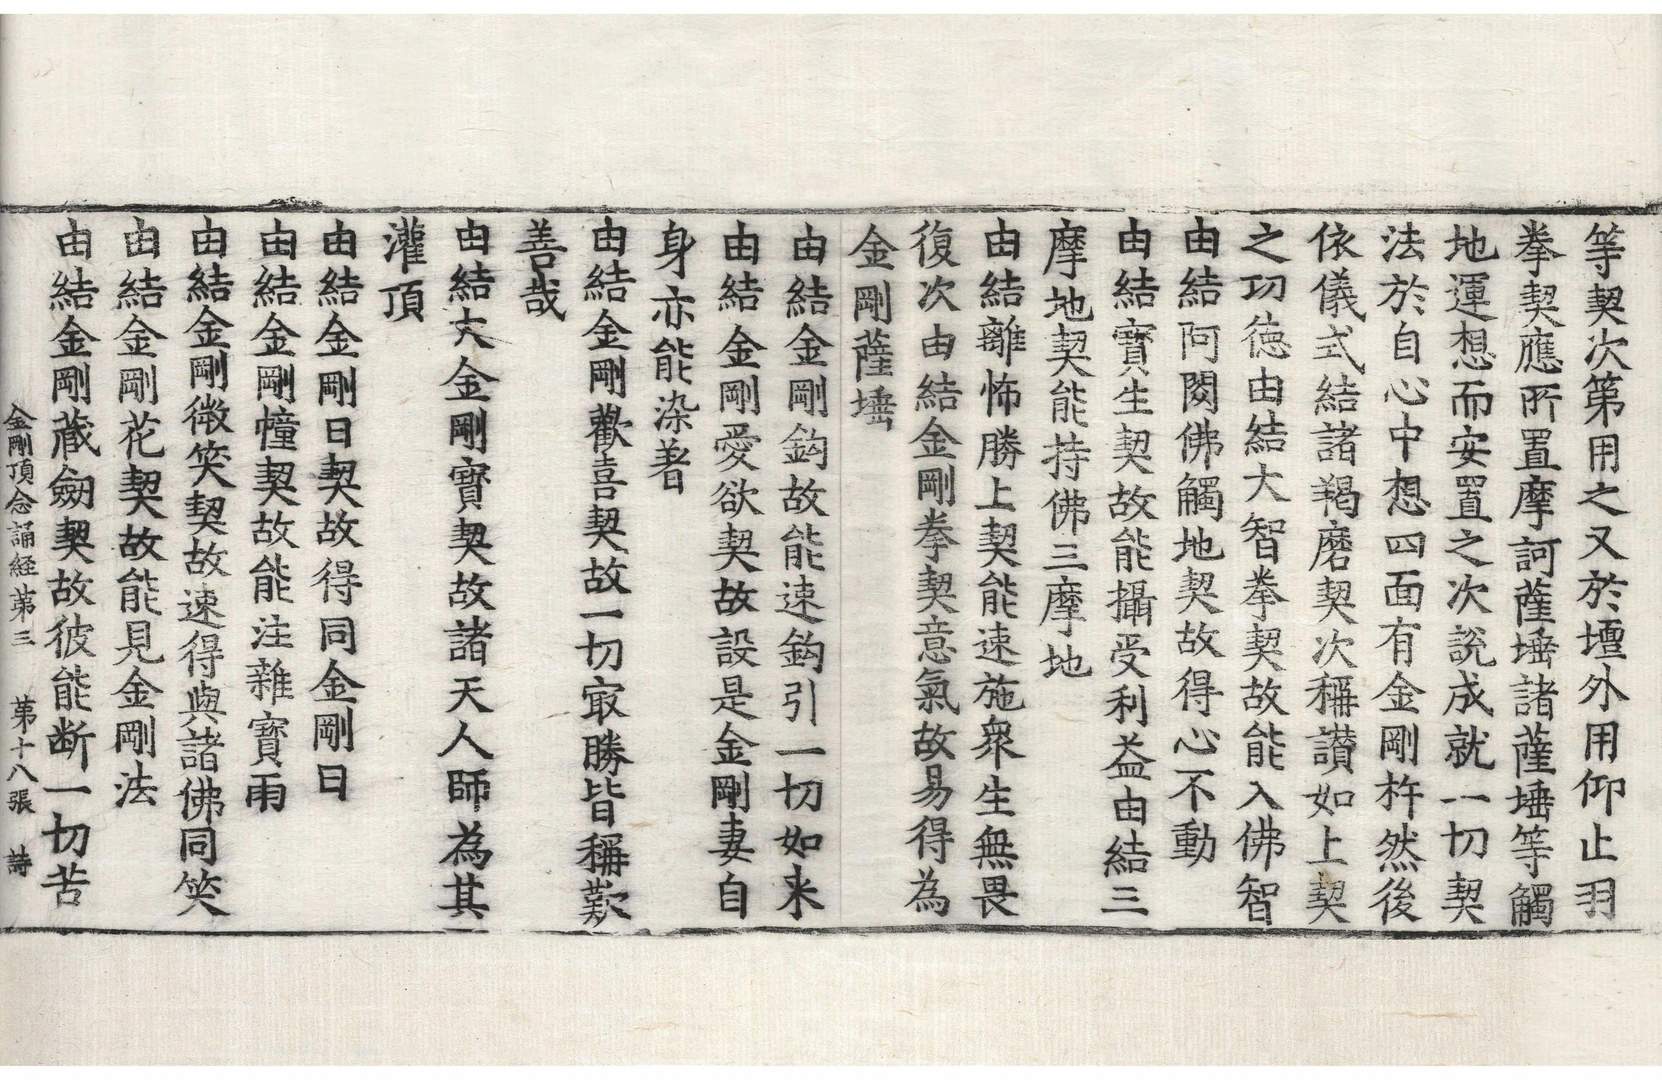 等契次第用之又於壇外用仰止羽
拳契應所置摩訶薩埵諸薩埵等觸
地運想而安置之次說成就一切契
法於自心中想四面有金剛杵然後
依儀式結諸羯磨契次稱讚如上契
之功徳由結大智拳契故能入佛智
由結阿閦佛觸地契故得心不動
由結寶生契故能攝受利益由結三
摩地契能持佛三摩地
由結離怖勝上契能速施衆生無畏
復次由結金剛拳契意氣故易得為
金剛薩埵
由結金剛鈎故能速鈎引一切如来
由結金剛愛欲契故設是金剛妻自
身亦能染著
由結金剛歡喜契故一切㝡勝皆稱歎
善哉
由結大金剛寶契故諸天人師為其
灌頂
由結金剛日契故得同金剛日
由結金剛幢契故能注雜寶雨
由結金剛微笑契故速得與諸佛同笑
由結金剛花契故能見金剛法
由結金剛藏劒契故彼能断一切苦
金剛頂念誦経第三　第十八張　詩